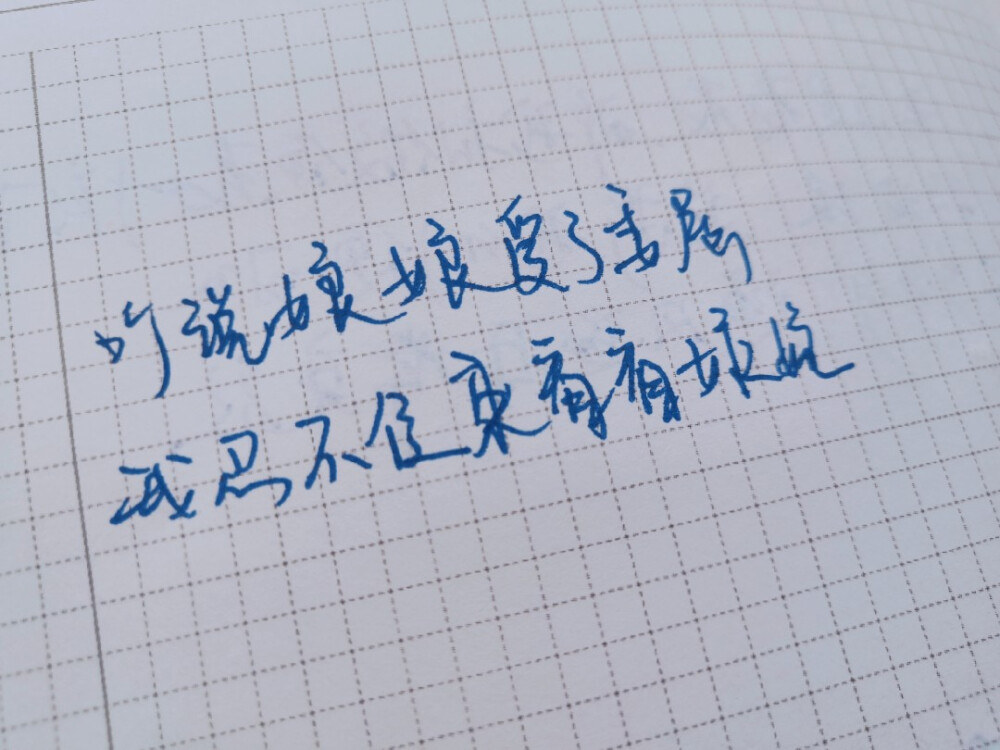 听说娘娘受了委屈
我忍不住来看看娘娘